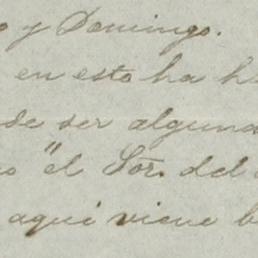 o y Domingo.
en esto ha h
de ser alguna
o "el Sor. del
aquí viene b